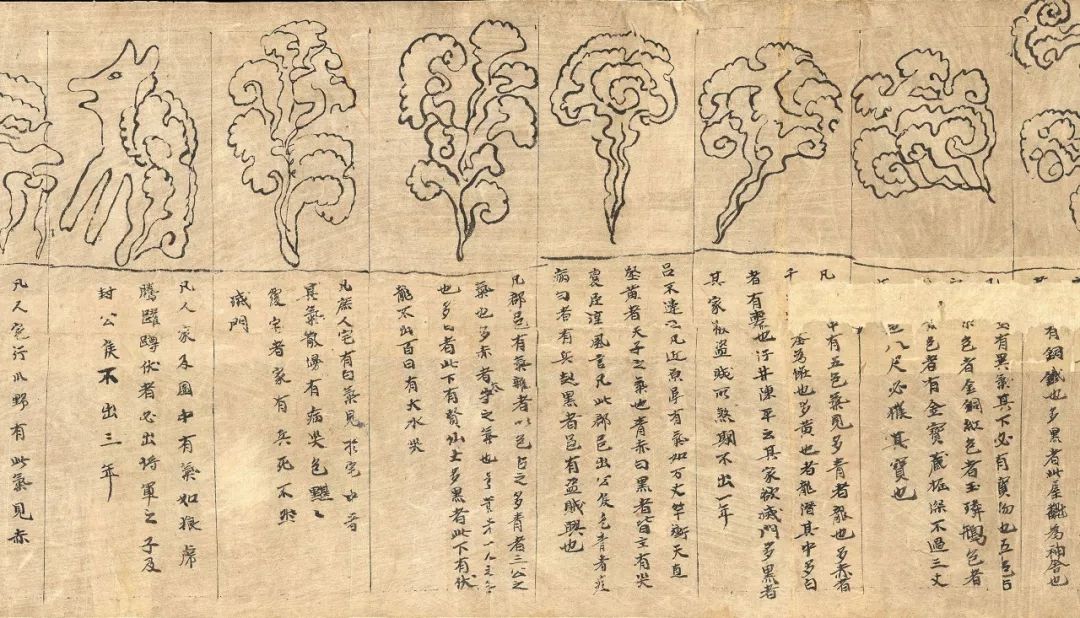 有銅鐵也多黑者此屋舊為神舍也
有異氣其下必有寶物也五色占
色者金銅紅色者玉瑋鵝色者
色者有金寶藏極深不過三丈
八尺必獲其寶也
凡中有五色氣見多青者龍也多赤者
為龍也多黃也者龍潛其中多白
者有也汙井陳平云其家欲滅門多黑者
其家被盜賊所煞期不出一年
呂不違云凡近原阜有氣如万丈竿衝天直
竪黃者天子之氣也青赤白黑者皆主有灾
袁臣淳風言凡此郡邑出公侯色青者疫
病白者有兵起黑者邑有盜賊興也
凡郡邑有氣雜者以色占之多青者三公之
氣也多赤者之氣也
也多白者此下有賢仙士多黑者此下有伏
龍不出百日有大水灾
凡庶人宅有白氣見於宅中音
其氣散漫有病哭色黑
復宅者家有兵死不然
滅門
凡人家及園中有氣如狼虎
騰躍蹲伏者必出將軍之子及
封公侯不出三年
凡人宅行野有此氣見赤